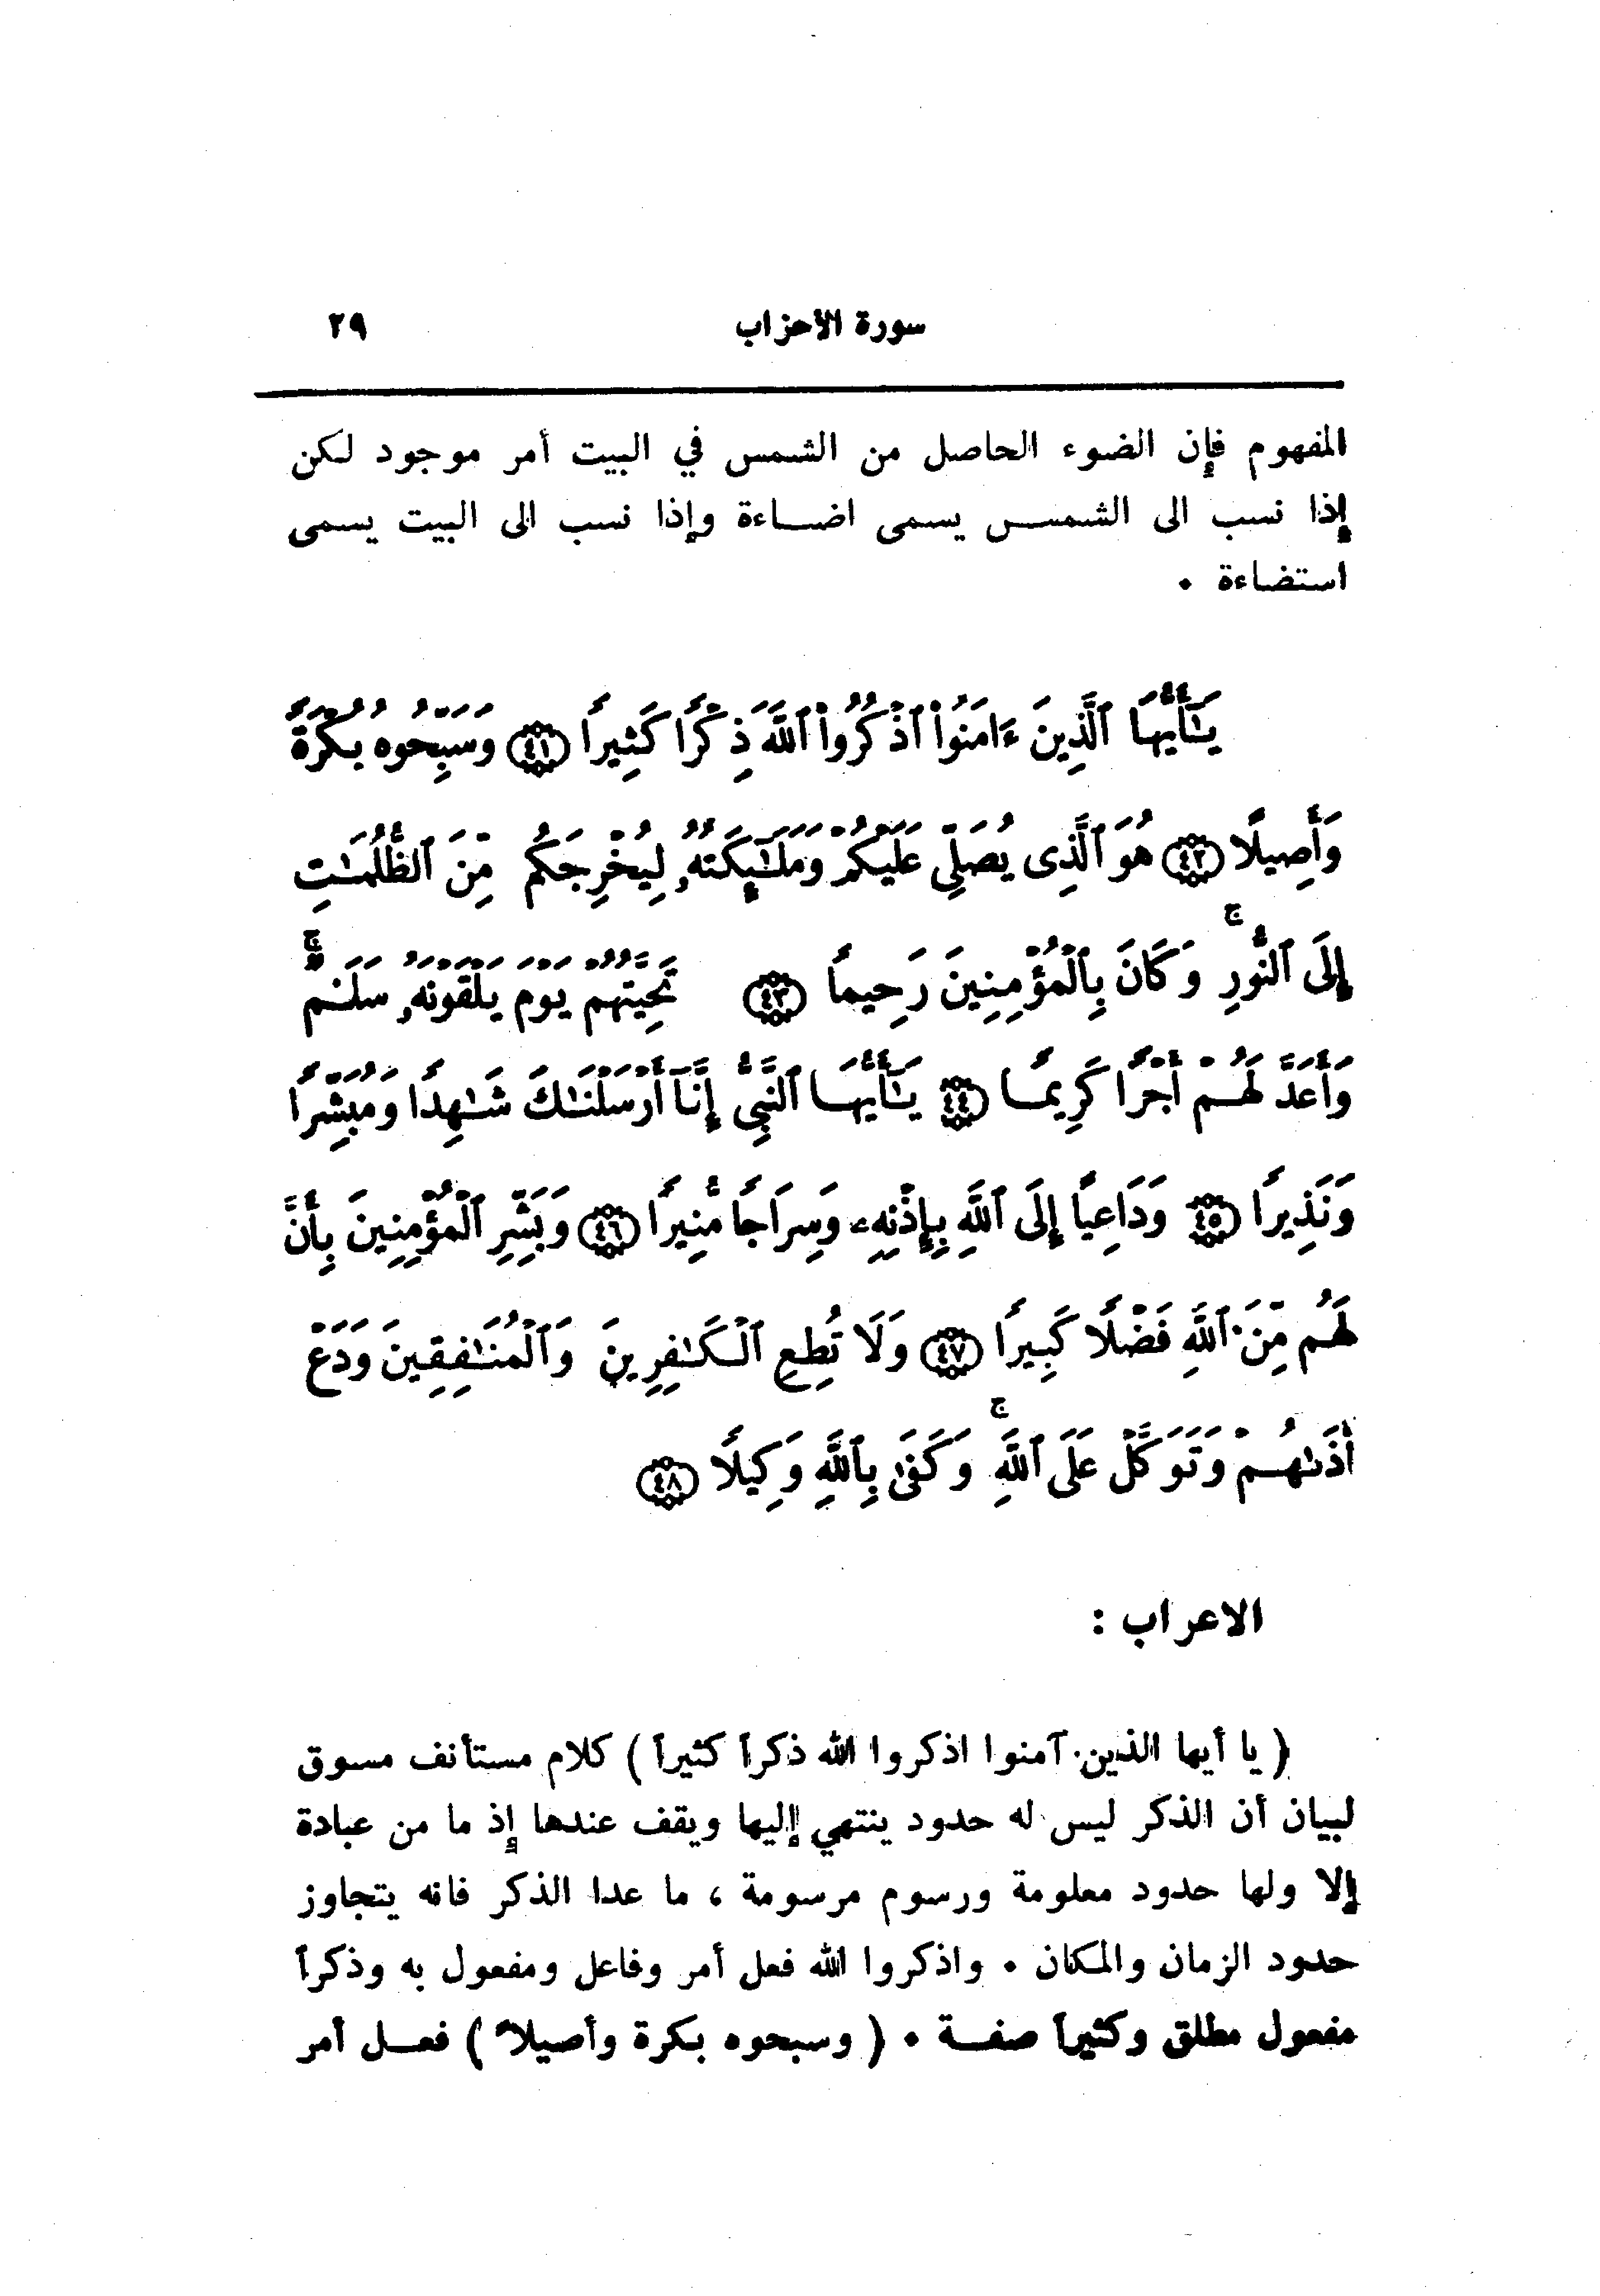 سورة الأحزاب ٢٩
المفهوم فإن الضوء الحاصل من الشمس في البيت أمر موجود لكن
إذا نسب الى الشمس يسمى اضاءة وإذا نسب الى البيت يسمى
استضاءة .
يَٰٓأَيُّهَا ٱلَّذِينَ ءَامَنُوا۟ ٱذْكُرُوا۟ ٱللَّهَ ذِكْرًا كَثِيرًا ﴿٤١﴾ وَسَبِّحُوهُ بُكْرَةً
وَأَصِيلًا ﴿٤٢﴾ هُوَ ٱلَّذِى يُصَلِّى عَلَيْكُمْ وَمَلَٰٓئِكَتُهُۥ لِيُخْرِجَكُم مِّنَ ٱلظُّلُمَٰتِ
إِلَى ٱلنُّورِ ۚ وَكَانَ بِٱلْمُؤْمِنِينَ رَحِيمًا ﴿٤٣﴾ تَحِيَّتُهُمْ يَوْمَ يَلْقَوْنَهُۥ سَلَٰمٌ ۚ
وَأَعَدَّ لَهُمْ أَجْرًا كَرِيمًا ﴿٤٤﴾ يَٰٓأَيُّهَا ٱلنَّبِىُّ إِنَّآ أَرْسَلْنَٰكَ شَٰهِدًا وَمُبَشِّرًا
وَنَذِيرًا ﴿٤٥﴾ وَدَاعِيًا إِلَى ٱللَّهِ بِإِذْنِهِۦ وَسِرَاجًا مُّنِيرًا ﴿٤٦﴾ وَبَشِّرِ ٱلْمُؤْمِنِينَ بِأَنَّ
لَهُم مِّنَ ٱللَّهِ فَضْلًا كَبِيرًا ﴿٤٧﴾ وَلَا تُطِعِ ٱلْكَٰفِرِينَ وَٱلْمُنَٰفِقِينَ وَدَعْ
أَذَىٰهُمْ وَتَوَكَّلْ عَلَى ٱللَّهِ ۚ وَكَفَىٰ بِٱللَّهِ وَكِيلًا ﴿٤٨﴾
الاعراب :
( يا أيها الذين آمنوا اذكروا الله ذكراً كثيراً ) كلام مستأنف مسوق
لبيان أن الذكر ليس له حدود ينتهي إليها ويقف عندها إذ ما من عبادة
إلا ولها حدود معلومة ورسوم مرسومة ، ما عدا الذكر فانه يتجاوز
حدود الزمان والمكان . واذكروا الله فعل أمر وفاعل ومفعول به وذكراً
مفعول مطلق وكثيراً صفة . ( وسبحوه بكرة وأصيلاً ) فعل أمر